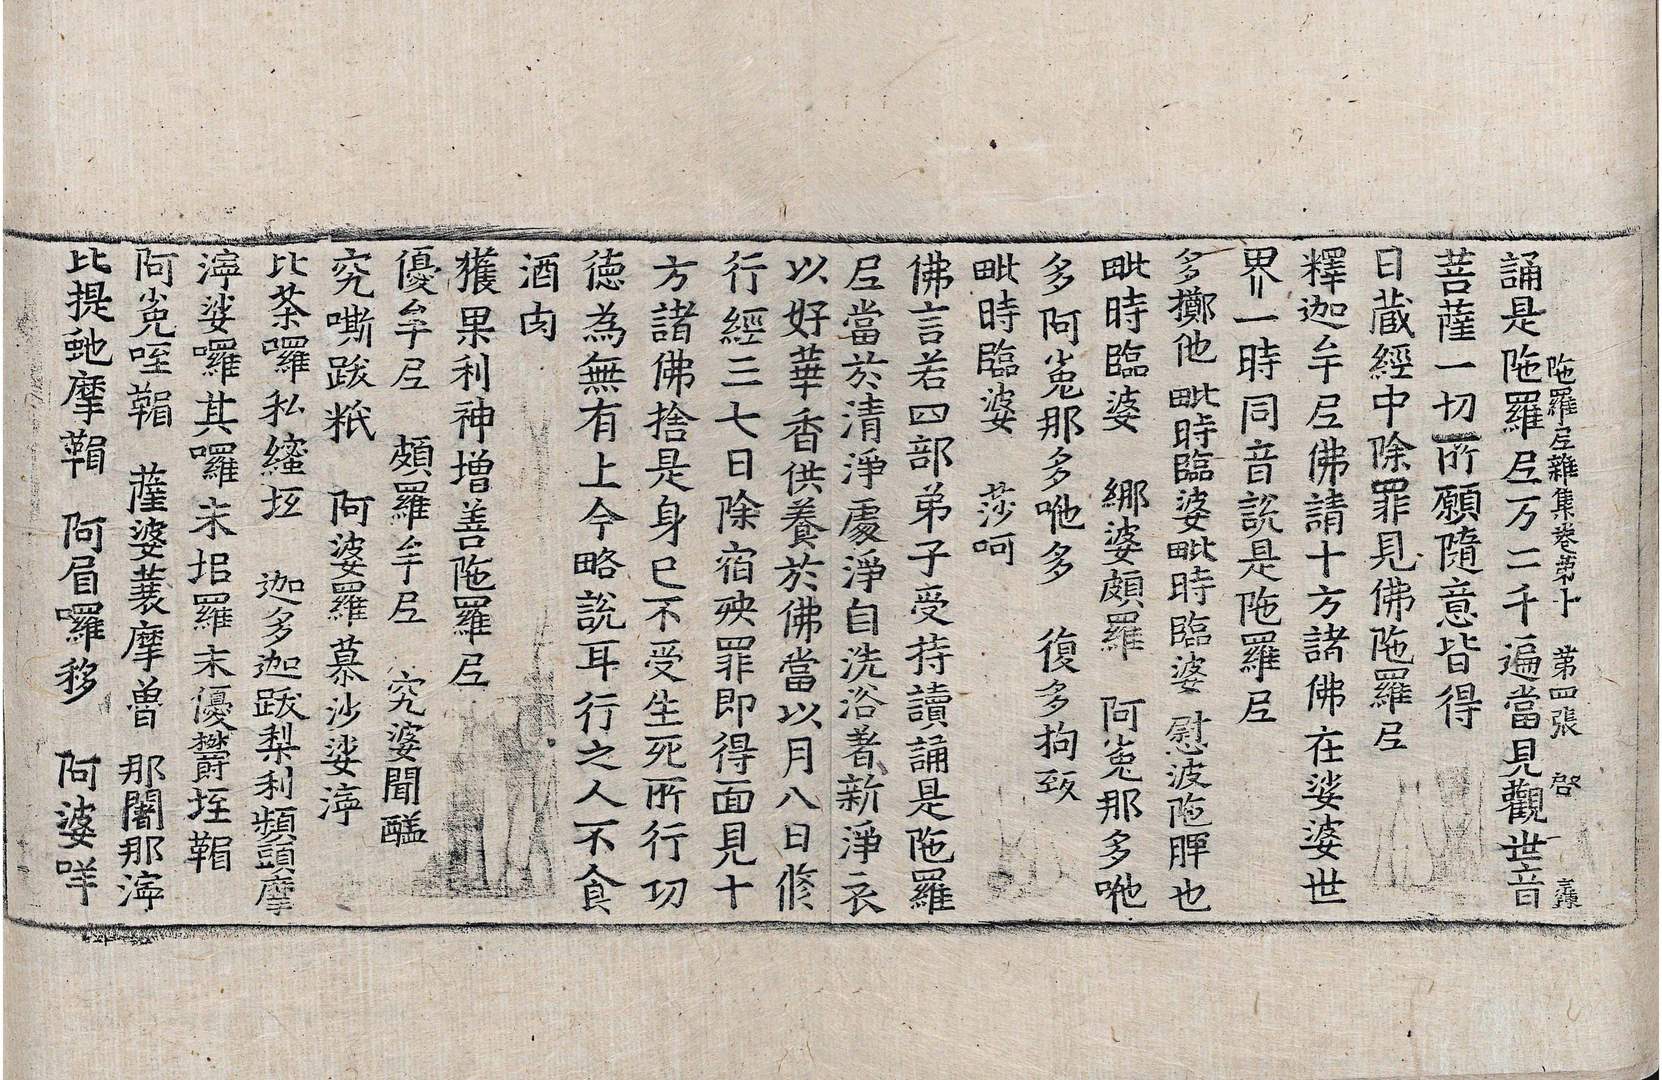 陁羅尼雜集卷第十 第四張 啓
誦是陁羅尼万二千遍當見觀世音
菩薩一切所願隨意皆得
日藏經中除罪見佛陁羅尼
釋迦牟尼佛請十方諸佛在娑婆世
界一時同音說是陁羅尼
多擲他 毗時臨婆毗時臨婆 慰波陁脾也
毗時臨婆 綁婆頗羅 阿㝹那多咃
多阿㝹那多咃多 復多拘䟽
毗時臨婆 莎呵
佛言若四部弟子受持讀誦是陁羅
尼當於清淨處淨自洗浴著新淨衣
以好華香供養於佛當以月八日修
行經三七日除宿殃罪即得面見十
方諸佛捨是身已不受生死所行功
德為無有上今略說耳行之人不食
酒肉
獲果利神增善陁羅尼
優牟尼 頗羅牟尼 究婆聞醯
究嘶跋秖 阿婆羅慕沙娑濘
比荼囉私 迦多迦跋梨利頻頭摩
濘娑囉其囉末坘羅末優欝垤鞨
阿㝹咥鞨 薩婆蓑摩曽 那闍那濘
比提虵摩鞨 阿眉囉移 阿婆咩